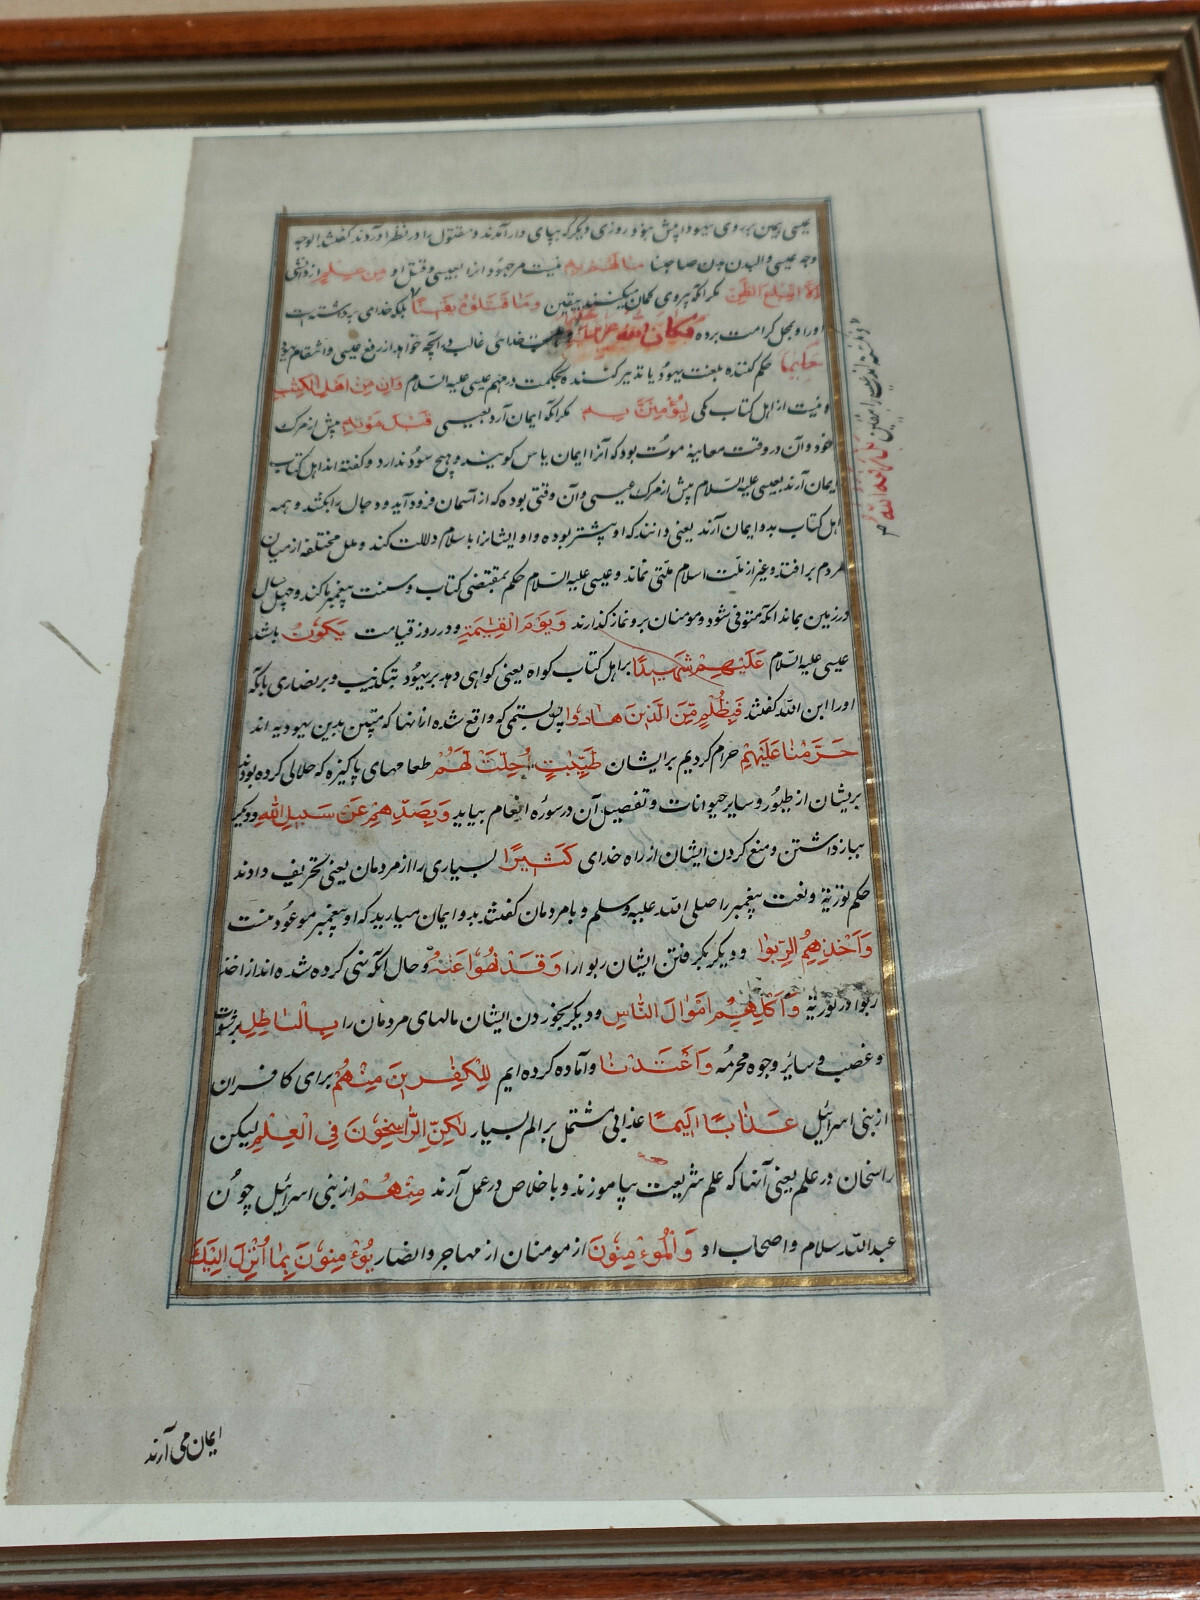 وجه عیسی والبدن بدن صاحبنا ما لهم به نیست مرجهود انرا بعیسی و قتل او من علم از دانشی
الا اتباع الظن مکر آنکه پیروی کمان میکنند بیقین وما قتلوه یقینا بلکه خدای برداشتست
اورا و بمحل کرامت برده وکان الله خدائی غالب در آنچه خواهد از رفع عیسی و انتقام
حکیما حکم کننده بلعنت یهود یا تدبیر کننده بحکمت در مهم عیسی علیه السلام وان من اهل الکتب
و نیست از اهل کتاب یکی لیؤمنن به مکر آنکه ایمان آرد بعیسی قبل موته پیش از مرک
خود و آن در وقت معاینه موت بود که آنرا ایمان یاس کویند و هیچ سود ندارد و کفته اند اهل کتاب
ایمان آرند بعیسی علیه السلام پیش از مرک عیسی و آن وقتی بوده که از آسمان فرود آید و دجال را بکشد و همه
اهل کتاب بدو ایمان آرند یعنی دانند که او پیشتر بوده و او ایشانرا باسلام دلالت کند و ملل مختلفه از میان
مردم برافتد و غیر از ملت اسلام ملتی نماند و عیسی علیه السلام حکم بمقتضی کتاب و سنت پیغمبر ما کند و چهل سال
در زمین بماند آنکه متوفی شود و مومنان برو نماز کذارند ویوم القیمة و در روز قیامت یکون باشد
عیسی علیه السلام علیهم شهیدا بر اهل کتاب کواه یعنی کواهی دهد بر یهود بتکذیب و بر نصاری بانکه
اورا ابن الله کفتند فبظلم من الذین هادوا پس بستمی که واقع شده از آنها که متدین بدین یهودیه اند
حرمنا علیهم حرام کردیم بر ایشان طیبت احلت لهم طعامهای پاکیزه که حلال کرده بودیم
بریشان از طیور و سایر حیوانات و تفصیل آن در سورۀ انعام بیاید وبصدهم عن سبیل الله و دیکر
ببازداشتن و منع کردن ایشان از راه خدای کثیرا بسیاری را از مردمان یعنی تحریف دادند
حکم توریة و نعت پیغمبر را صلی الله علیه وسلم و با مردمان کفتند بدو ایمان میارید که او پیغمبر موعود نیست
وَاَخْذِهِمُ الرِّبٰوا و دیکر بکرفتن ایشان ربوا را وَقَدْ نُهُوْا عَنْهُ و حال آنکه نهی کرده شده اند از اخذ
ربوا در توریة وَاَکْلِهِمْ اَمْوَالَ النَّاسِ و دیکر بخوردن ایشان مالهای مردمان را بِالْبَاطِلِ برشوت
و غصب و سائر وجوه محرمه وَاَعْتَدْنَا و آماده کرده ایم لِلْکٰفِرِیْنَ مِنْهُمْ برای کافران
از بنی اسرائیل عَذَابًا اَلِیْمًا عذابی مشتمل بر الم بسیار لٰکِنِ الرَّاسِخُوْنَ فِی الْعِلْمِ لیکن
راسخان در علم یعنی آنها که علم شریعت بیاموزند و باخلاص در عمل آرند مِنْهُمْ از بنی اسرائیل چون
عبدالله سلام و اصحاب او وَالْمُؤْمِنُوْنَ از مومنان از مهاجر و انصار یُؤْمِنُوْنَ بِمَا اُنْزِلَ اِلَیْکَ
ایمان می آرند